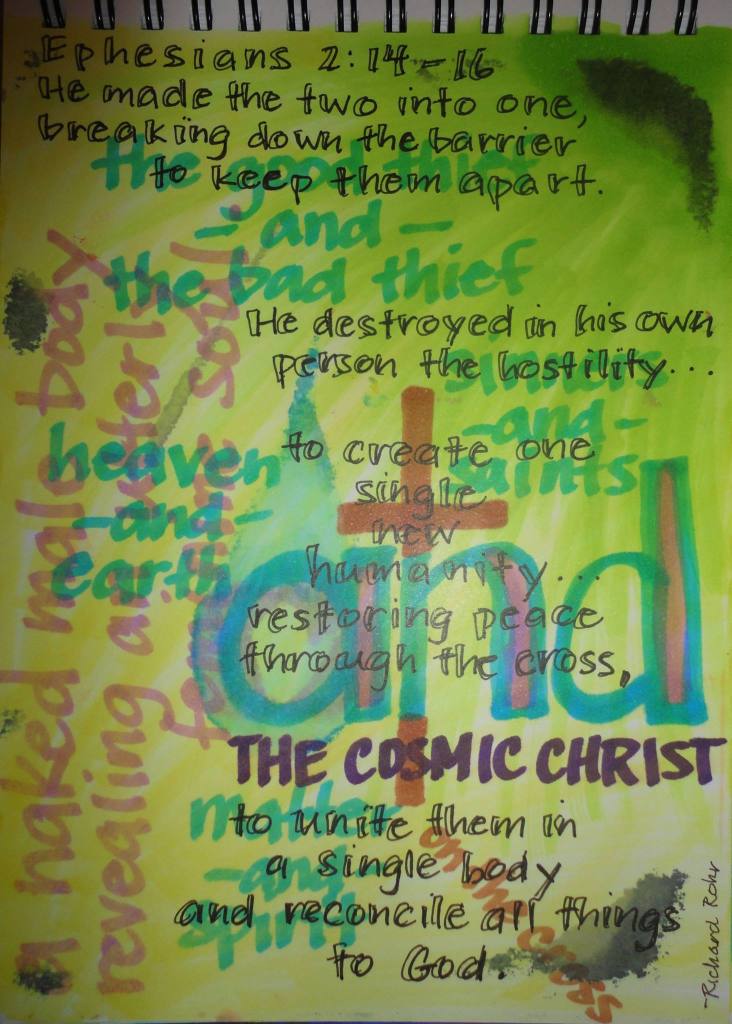 Ephesians 2:14-16
He made the two into one,
breaking down the barrier
to keep them apart.
the good thief
- and -
the bad thief
He destroyed in his own
person the hostility...
sinners
- and -
saints
heaven
- and -
earth
to create one
single
new
humanity...
restoring peace
through the cross,
and
THE COSMIC CHRIST
to unite them in
a single body
and reconcile all things
to God.
matter
- and -
spirit
on the cross
a naked male body
revealing an utterly
soul
~Richard Rohr